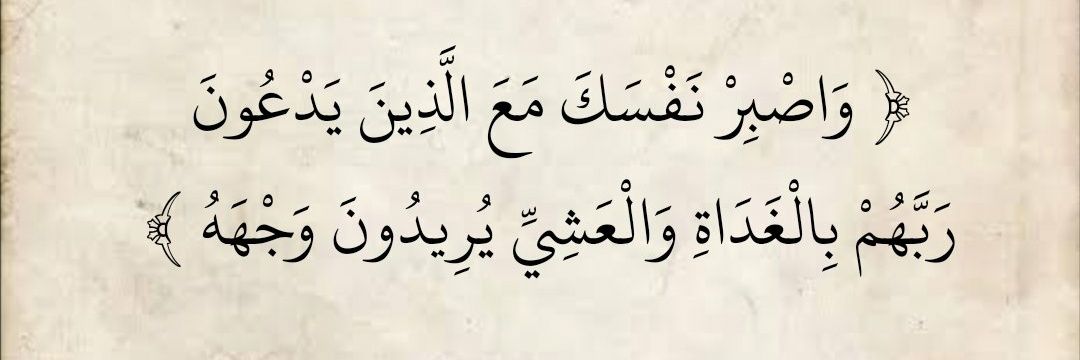 ﴿ وَاصْبِرْ نَفْسَكَ مَعَ الَّذِينَ يَدْعُونَ
رَبَّهُمْ بِالْغَدَاةِ وَالْعَشِيِّ يُرِيدُونَ وَجْهَهُ ﴾